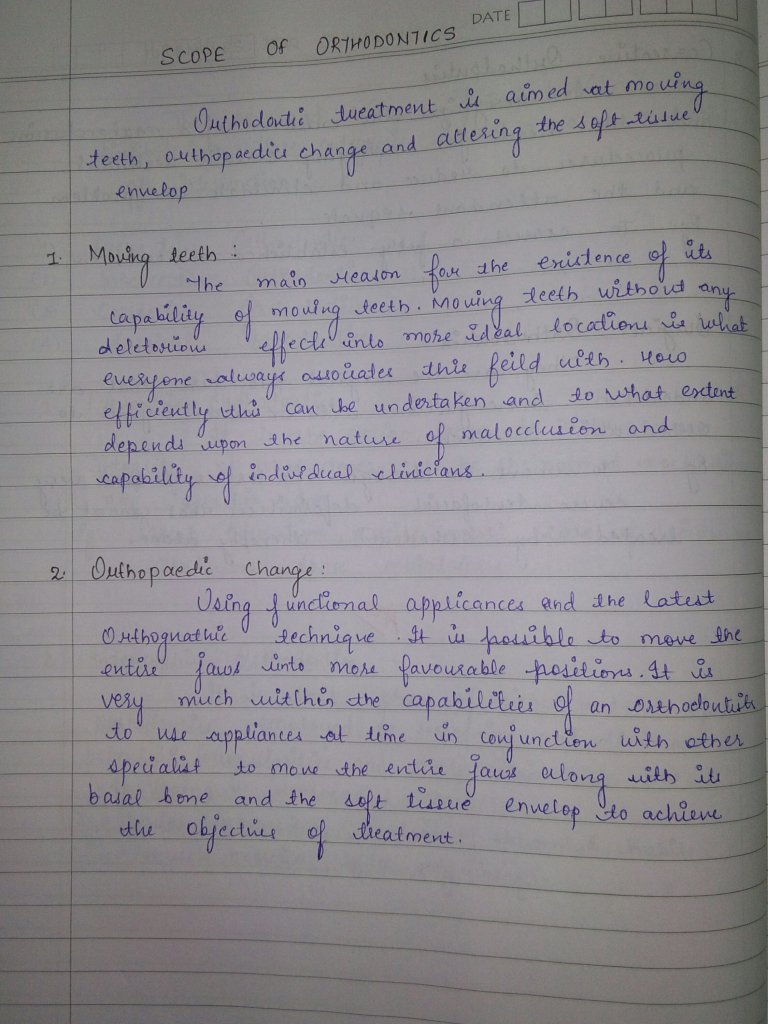 DATE
SCOPE OF ORTHODONTICS
Orthodontic treatment is aimed at moving
teeth, orthopaedics change and altering the soft tissue
envelop
1. Moving teeth :
The main reason for the existence of its
capability of moving teeth. Moving teeth without any
deletorious effects into more ideal locations is what
everyone always associates this feild with. How
efficiently this can be undertaken and to what extent
depends upon the nature of malocclusion and
capability of individual clinicians.
2. Orthopaedic Change :
Using functional applicances and the latest
Orthognathic technique. It is possible to move the
entire jaws into more favourable positions. It is
very much witihin the capabilities of an orthodontists
to use appliances at time in conjunction with other
specialist to move the entire jaws along with its
basal bone and the soft tissue envelop to achieve
the objectives of treatment.